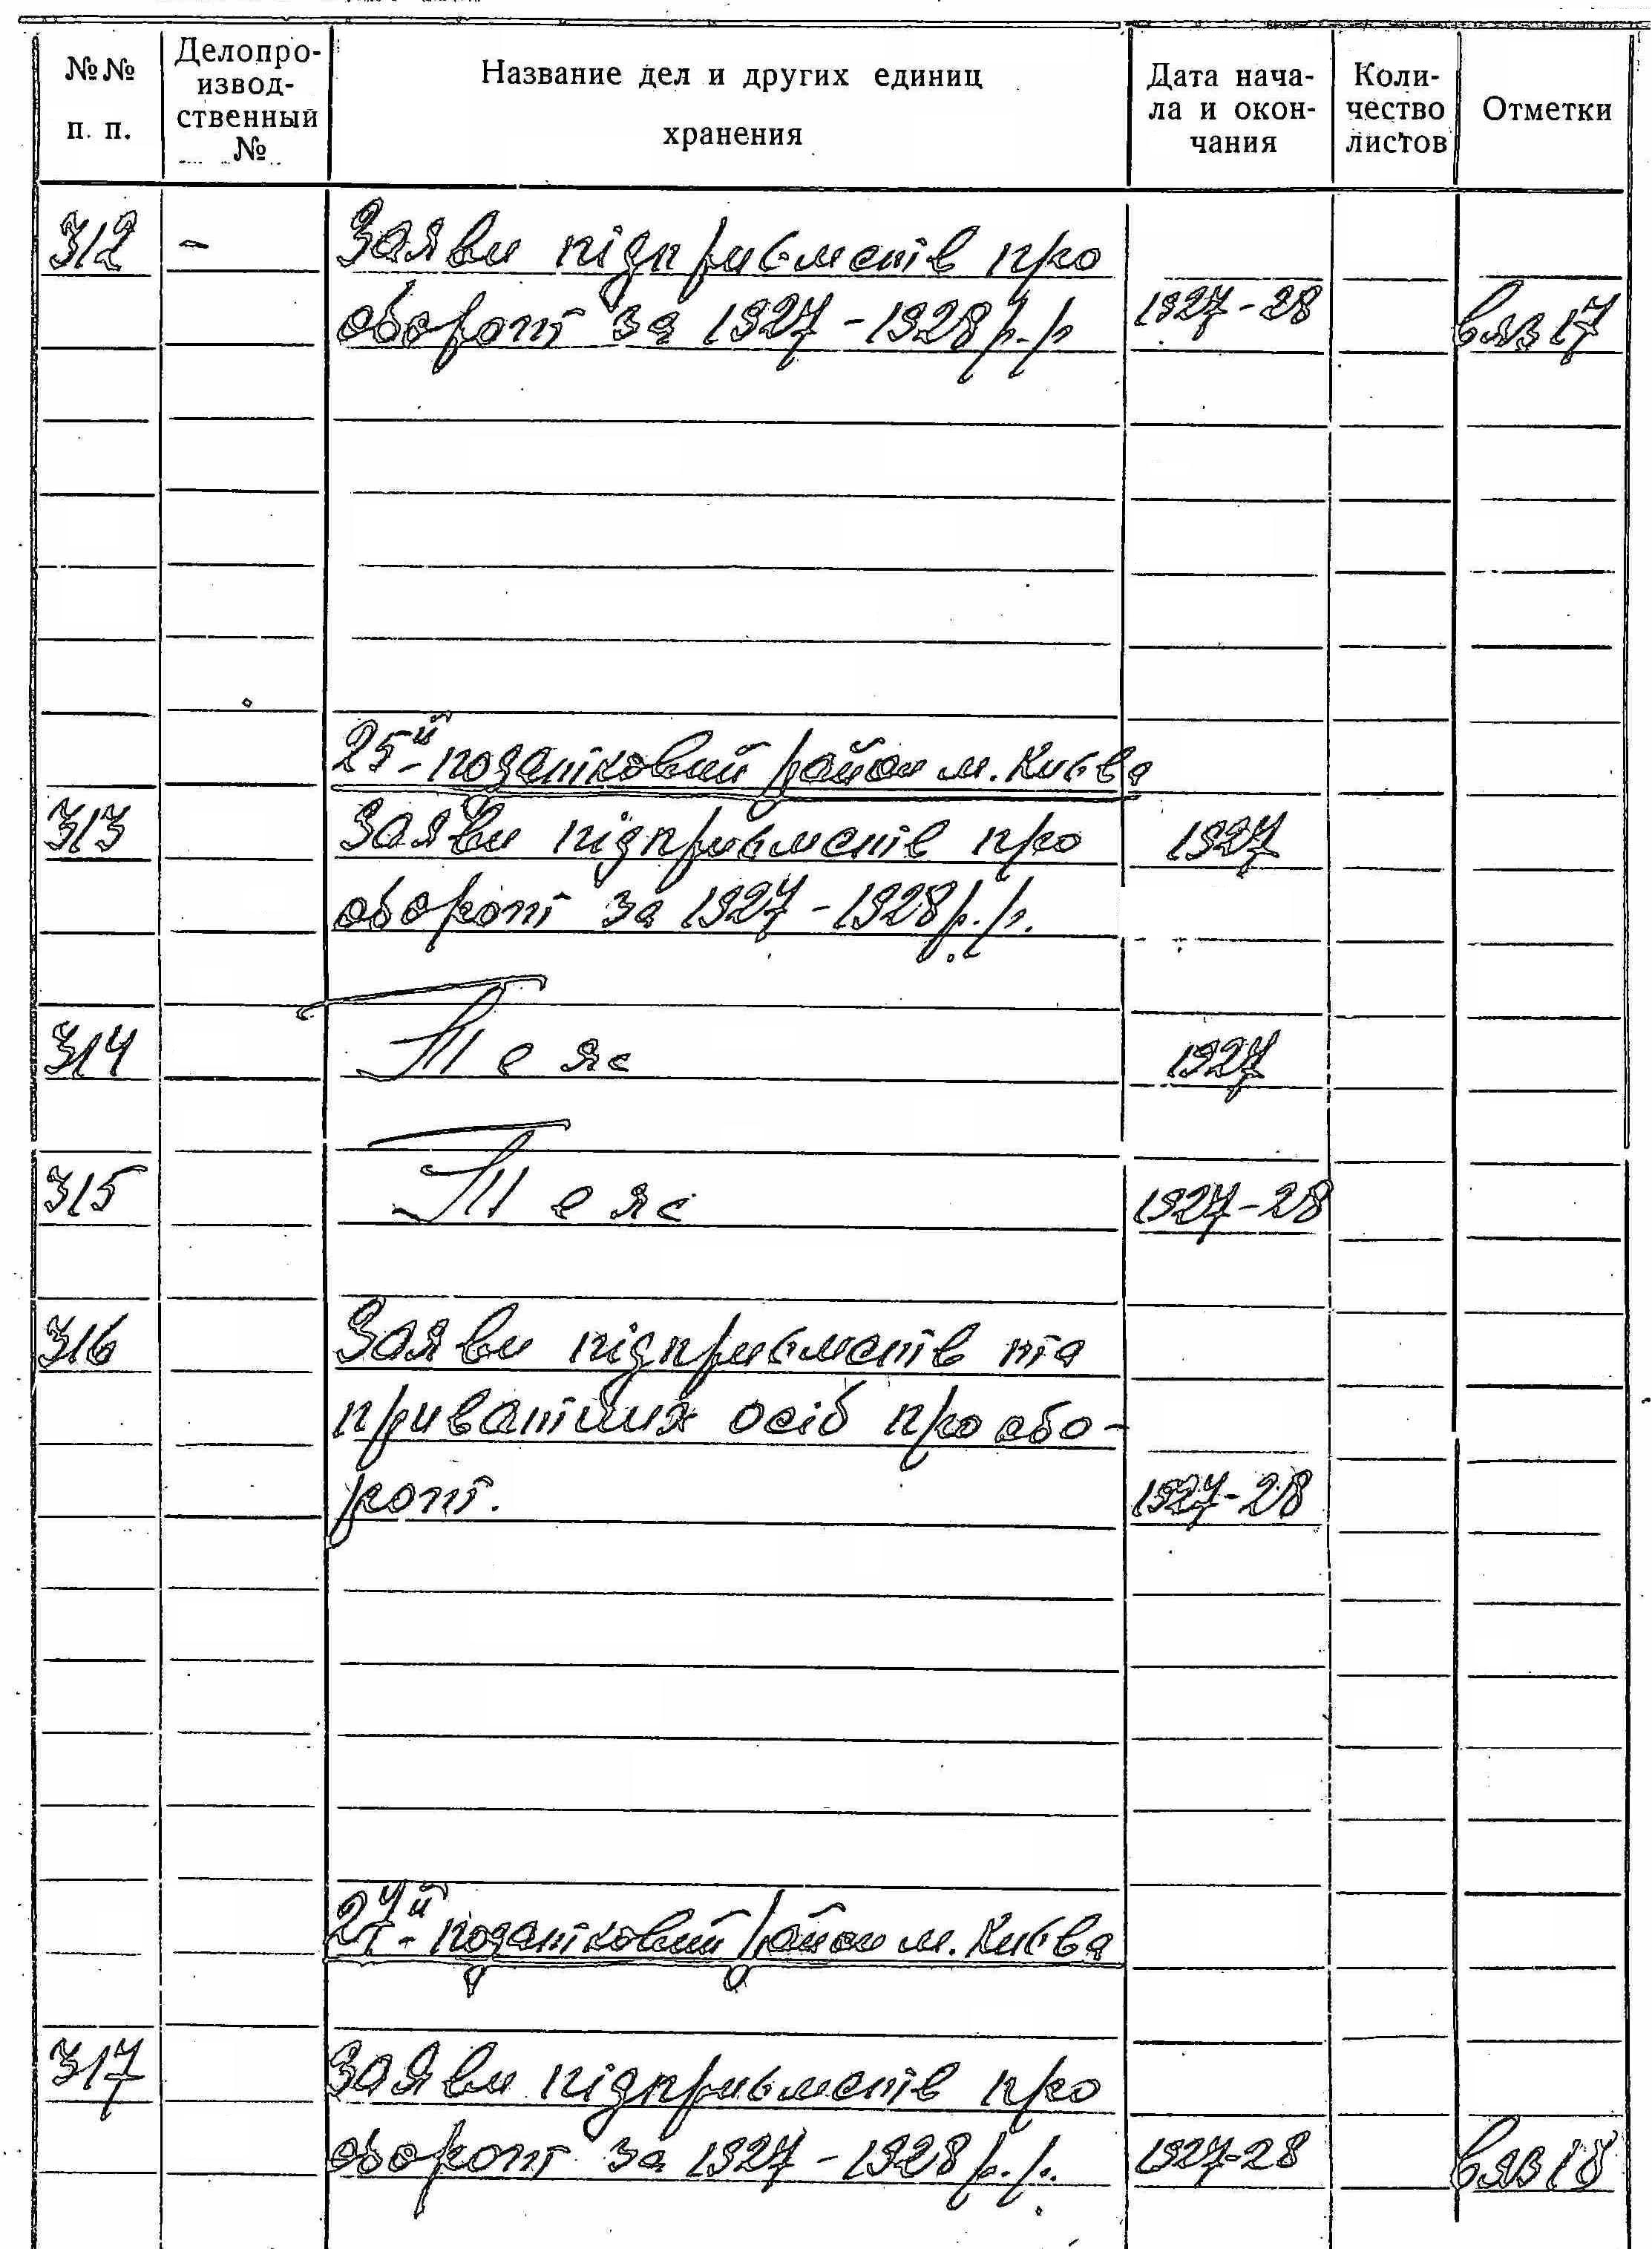 №№ п. п.
Делопроизводственный №
Название дел и других единиц хранения
Дата начала и окончания
Количество листов
Отметки
312 - Заяви підприємств про
оборот за 1927-1928 р.р. 1927-28 вяз 17
25й- податковий район м. Києва
313 Заяви підприємств про 1927
оборот за 1927-1928 р.р.
314 Теж 1927
315 Теж 1927-28
316 Заяви підприємств та
приватних осіб про обо-
рот. 1927-28
27й- податковий район м. Києва
317 Заяви підприємств про
оборот за 1927-1928 р.р. 1927-28 вяз 18